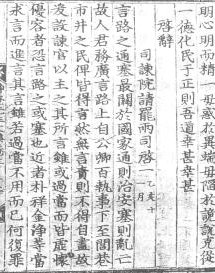 明心明而精一毋惑於異端毋陷於詖說克從
一德化民于正則吾道幸甚幸甚
啓辭
司諫院請罷兩司啓 乙亥十一月
言路之通塞最關於國家通則治安塞則亂亡
故人君務廣言路上自公卿百執事下至閭巷
市井之民俾皆得言然無言責則不得自盡故
爰設諫官以主之其所言雖或過當而皆虛懷
優容者恐言路之或塞也近者朴祥金淨等當
求言而進言其言雖若過當不用而已何復罪